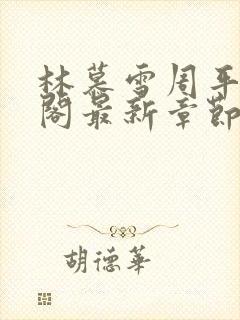 林慕雪周平
閣最新章節
胡德華